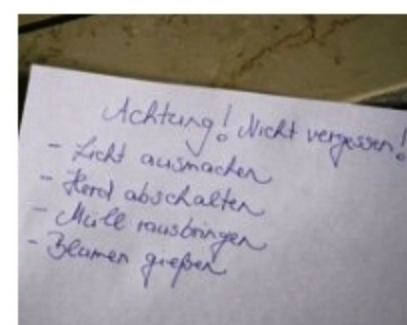 Achtung! Nicht vergessen!
- Licht ausmachen
- Herd abschalten
- Müll rausbringen
- Blumen gießen